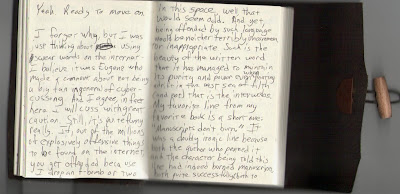 Yeah. Ready to move on
I forget why, but I was
just thinking about using
swear words on the internet.
I believe it was Eugene who
made a comment about not being
a big fan in general of cyber-
cussing. And I agree, in fact
here I will cuss with great
caution. Still, it's
really. If, out of the millions
of explosively offensive things
to be found on the internet
you get offended because
I drop an f bomb or two
in this space, well that
would seem odd. And yet,
being offended by such language
would be neither terribly uncommon
or inappropriate. Such is the
beauty of the written word
that it has managed to maintain
its purity and power even when
in the vast sea of filth
and rot that is the interwebs.
My favorite line from my
favorite book is a short one:
"Manuscripts don't burn." It
is a doubly ironic line because
both the author who penned it
and the character being told this
line had indeed burned manuscripts,
both quite successfully